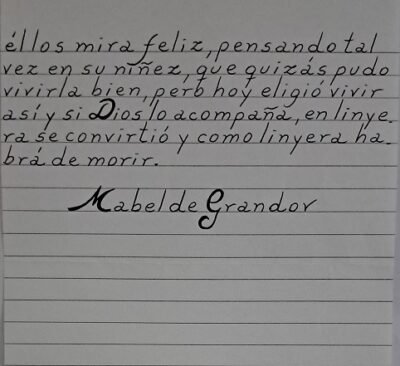 éllos mira feliz, pensando tal
vez en su niñez, que quizás pudo
vivirla bien, pero hoy eligió vivir
así y si Dios lo acompaña, en linye-
ra se convirtió y como linyera ha-
brá de morir.
Mabel de Grandov